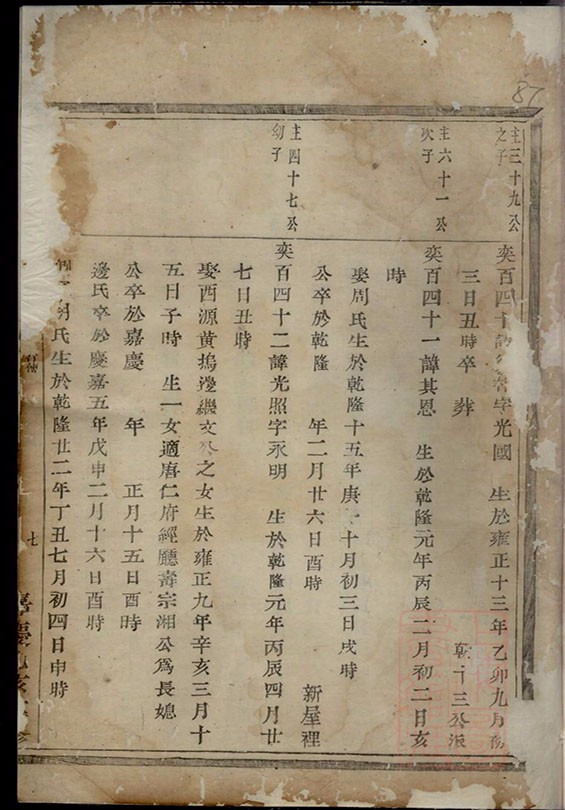 87
主三十九公
之子
奕百四十諱 字光國 生於雍正十三年乙卯九月初
三日丑時卒 葬
朝十三公派
主六十一公
次子
奕百四十一諱其恩 生於乾隆元年丙辰二月初二日亥
時
娶周氏生於乾隆十五年庚 十月初三日戌時
公卒於乾隆 年二月廿六日酉時 新屋裡
主四十七公
幼子
奕百四十二諱光照字永明 生於乾隆元年丙辰四月廿
七日丑時
娶西源黃塢邊繼文公之女生於雍正九年辛亥三月十
五日子時 生一女適唐仁府經廳壽宗湘公為長媳
公卒於嘉慶 年 正月十五日酉時
邊氏卒於慶嘉五年戊申二月十六日酉時
氏生於乾隆廿二年丁丑七月初四日申時
七